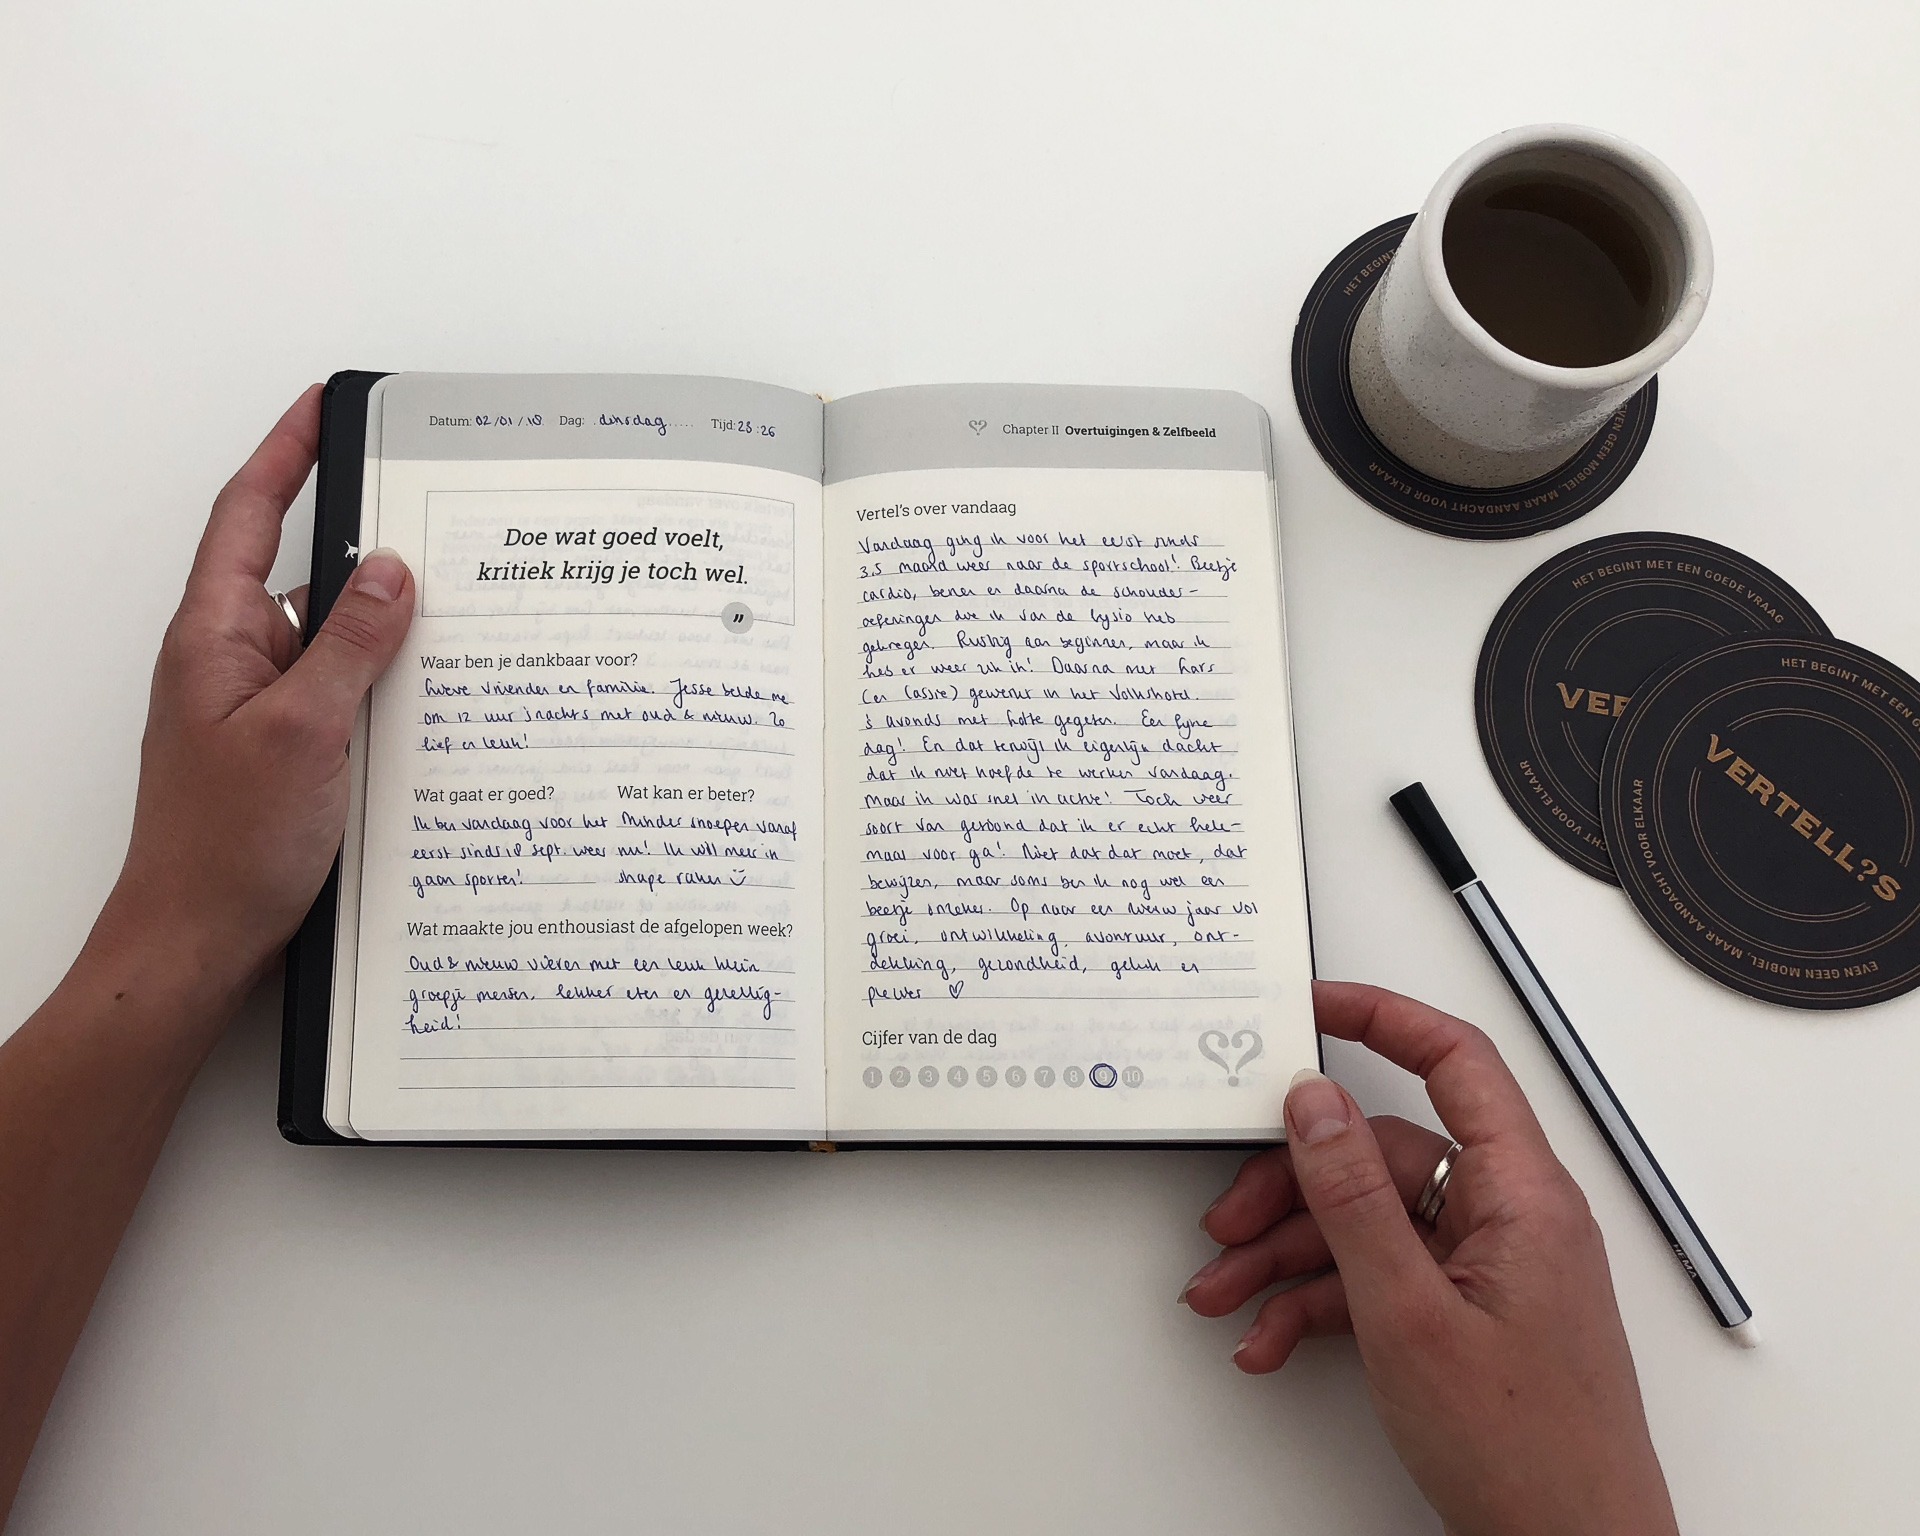 Datum: 02/01/18 Dag: dinsdag Tijd: 23:26
Doe wat goed voelt,
kritiek krijg je toch wel.
”
Waar ben je dankbaar voor?
Lieve vrienden en familie. Jesse belde me
om 12 uur 's nachts met oud & nieuw. Zo
lief en leuk!
Wat gaat er goed?
Ik ben vandaag voor het
eerst sinds 18 sept. weer
gaan sporten!
Wat kan er beter?
Minder snoepen vanaf
nu! Ik wil meer in
shape raken
Wat maakte jou enthousiast de afgelopen week?
Oud & nieuw vieren met een leuk klein
groepje mensen, lekker eten en gezellig-
heid!
Chapter II Overtuigingen & Zelfbeeld
Vertel's over vandaag
Vandaag ging ik voor het eerst sinds
3,5 maand weer naar de sportschool! Beetje
cardio, benen en daarna de schouder-
oefeningen die ik van de fysio heb
gekregen. Rustig aan beginnen, maar ik
heb er weer zin in! Daarna met Lars
(en Cassie) gewerkt in het Volkshotel.
's avonds met Lotte gegeten. Een fijne
dag! En dat terwijl ik eigenlijk dacht
dat ik niet hoefde te werken vandaag.
Maar ik was snel in actie! Toch weer
soort van getoond dat ik er echt hele-
maal voor ga! Niet dat dat moet, dat
bewijzen, maar soms ben ik nog wel een
beetje onzeker. Op naar een nieuw jaar vol
groei, ontwikkeling, avontuur, ont-
dekking, gezondheid, geluk en
plezier ♡
Cijfer van de dag
1 2 3 4 5 6 7 8 9 10
HET BEGINT
EVEN GEEN MOBIEL, MAAR AANDACHT VOOR ELKAAR
HET BEGINT MET EEN GOEDE VRAAG
VER
CHT VOOR ELKAAR
HET BEGINT MET EEN G
VERTELL?S
EVEN GEEN MOBIEL, MAAR AANDACHT VOOR ELKAAR
HEMA